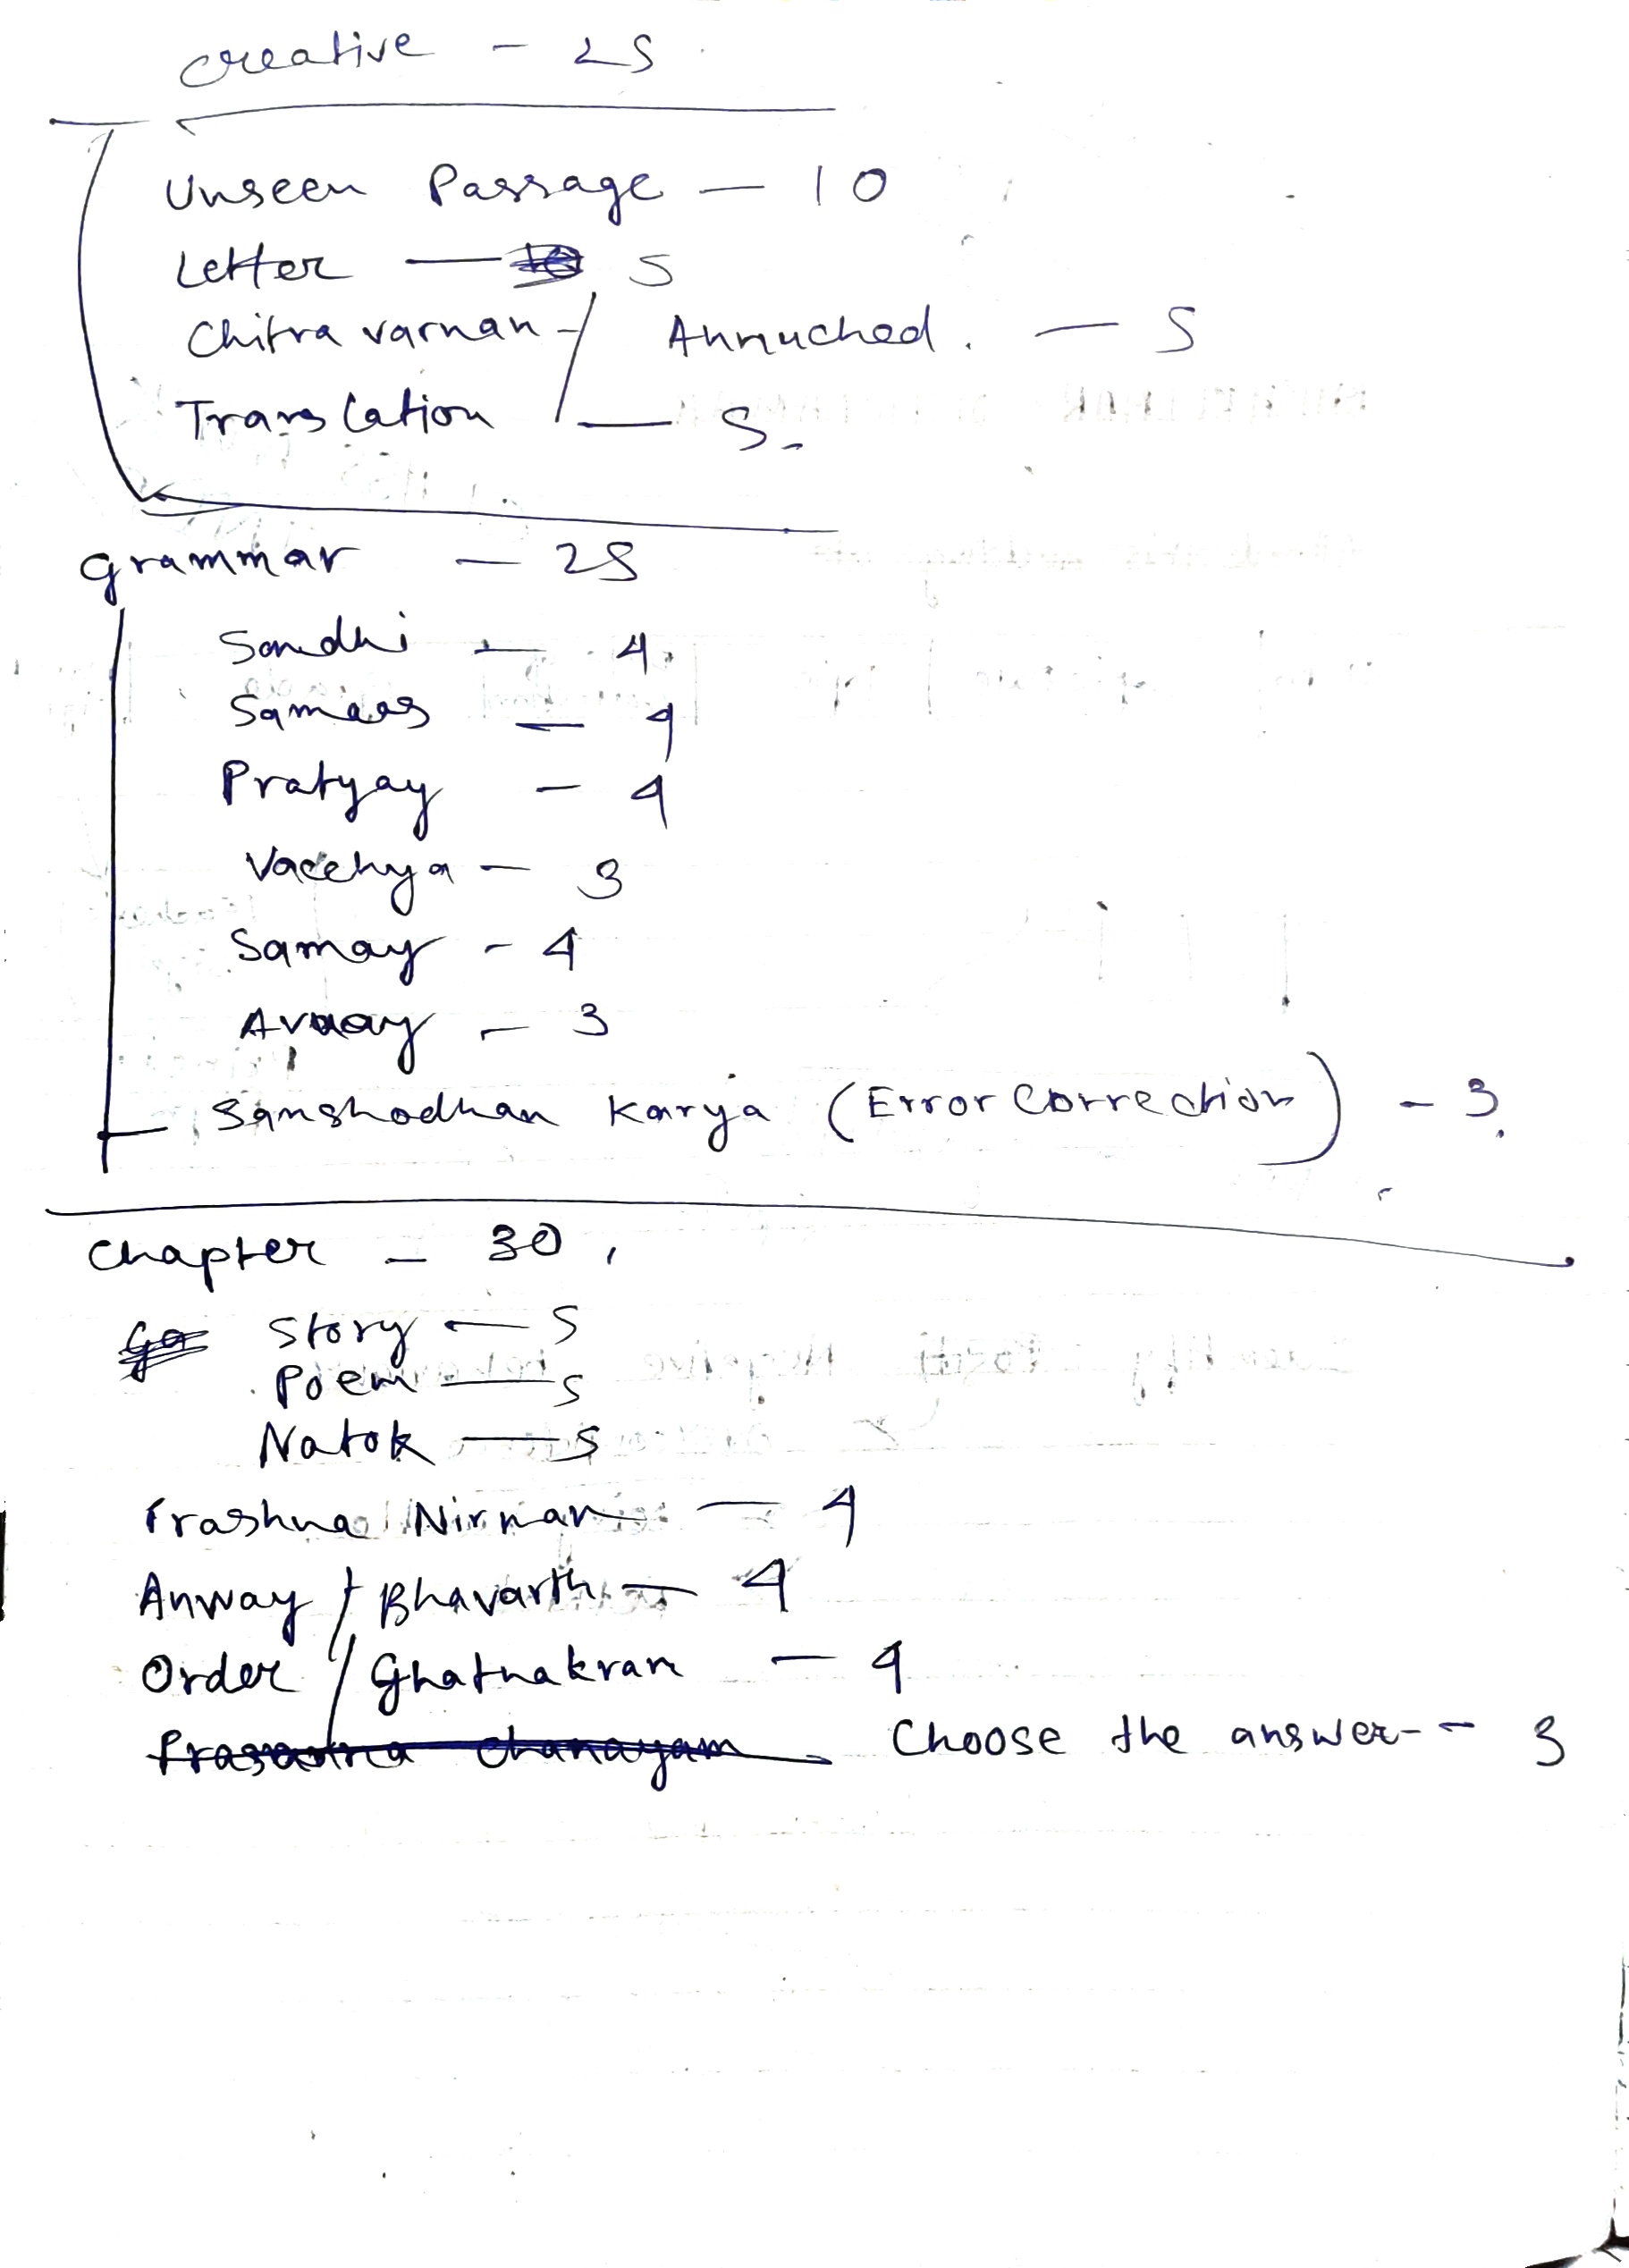 creative - 25
Unseen Passage — 10
Letter — 5
Chitra varnan / Annuched. — 5
Translation — 5.
grammar — 25
Sandhi — 4.
Samaas — 4
Pratyay — 4
Vacchya — 3
Samay - 4
Avyay - 3
Sanshodhan Karya (Error Correction) - 3.
Chapter - 30.
Story — 5
Poem — 5
Natok — 5
Prashna Nirman — 4
Anway / Bhavarth — 4
Order / Ghatnakram — 4
Choose the answer-- 3